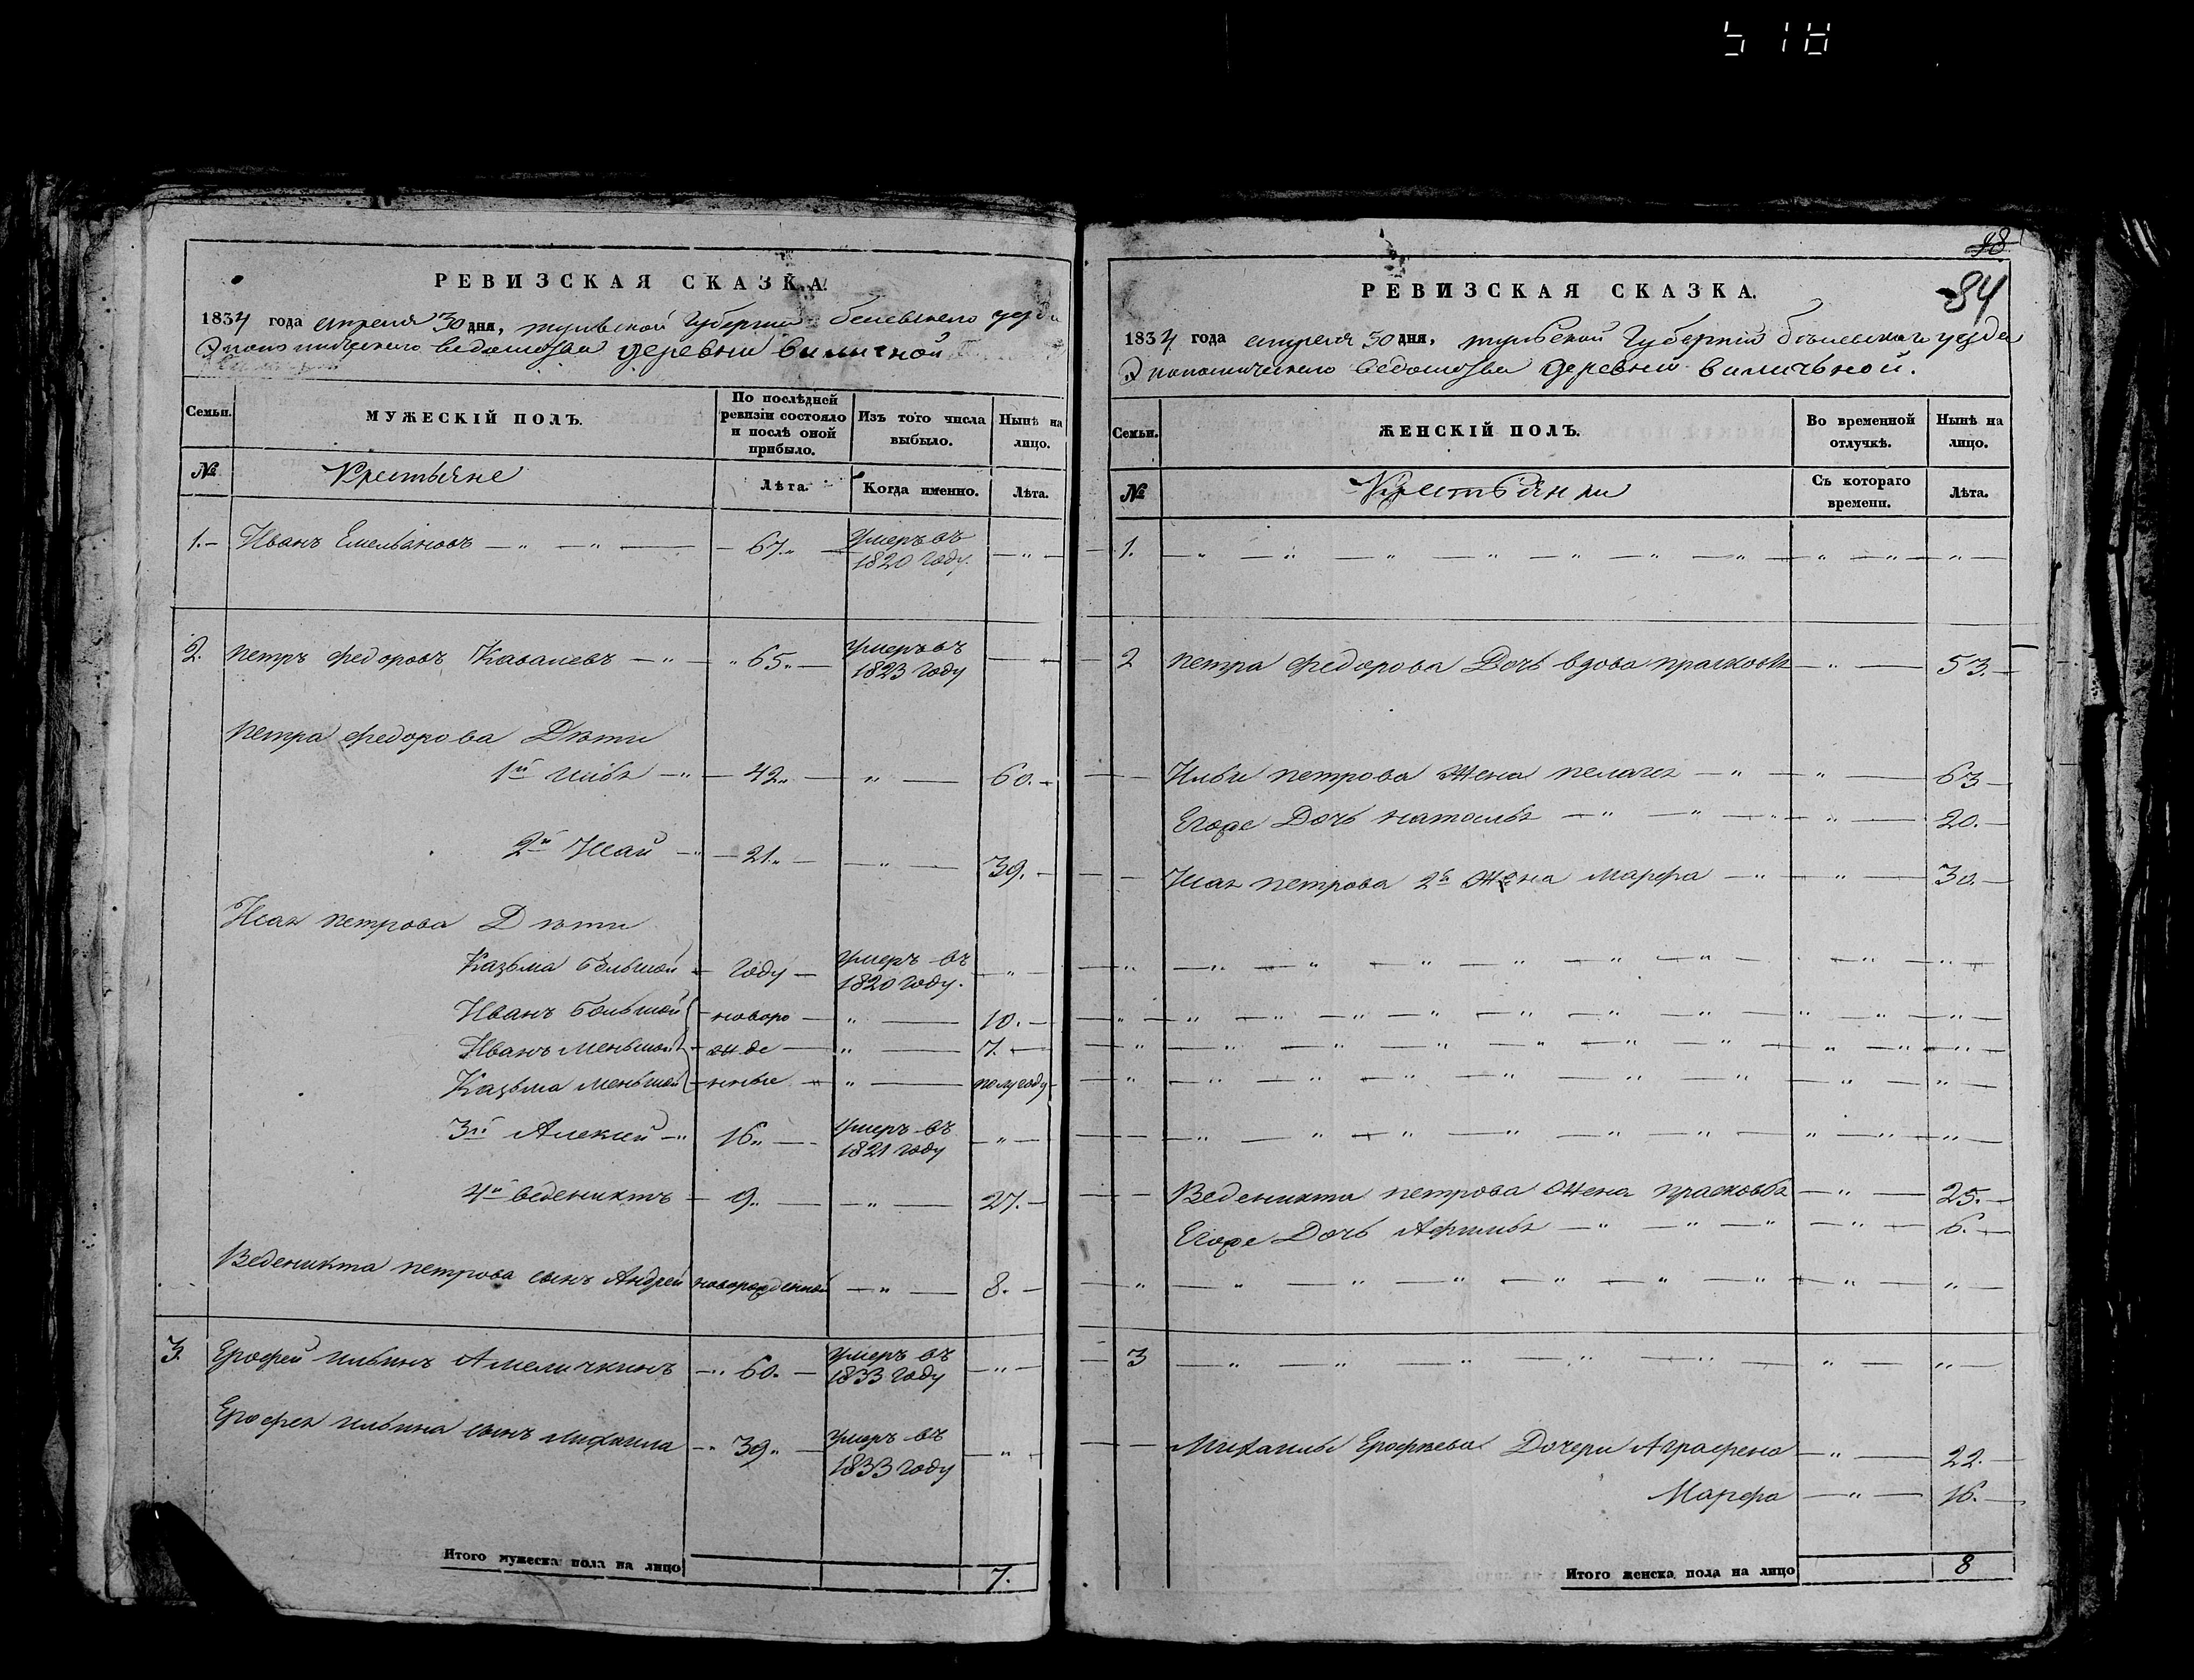 518
РЕВИЗСКАЯ СКАЗКА.
1834 года апреля 30 дня, тульской Губернии белевскаго уезда
Экономическаго ведомства деревни вилисной
Семьи.
МУЖЕСКІЙ ПОЛЪ.
По послѣдней ревизіи состояло и послѣ оной прибыло.
Изъ того числа выбыло.
Нынѣ на лицо.
№
Крестьяне
Лѣта.
Когда именно.
Лѣта.
1. Иванъ Емельяновъ 67. умеръ въ 1820 году.
2. петръ федоровъ Кавалевъ 65. умеръ въ 1823 году
петра федорова Дѣти
1й илья 42. 60.
2й Исай 21. 39.
Исая петрова Дѣти
Казьма большой году умеръ въ 1820 году.
Иванъ большой новоро 10.
Иванъ меньшой жде 7.
Казьма меньшой нные полугоду
3й Алексей 16. умеръ въ 1821 году
4й веденихтъ 9. 27.
Веденихта петрова сынъ Андрей новорожденной 8.
3. Ерофей ильинъ Амеличкинъ 60. умеръ въ 1833 году
Ерофея ильина сынъ михаила 39. умеръ въ 1833 году
Итого мужеска пола на лицо 7.
84
РЕВИЗСКАЯ СКАЗКА.
1834 года апреля 30 дня, тульской Губерніи бѣлевскаго уезда
Экономическаго ведомства деревни
Семьи.
ЖЕНСКІЙ ПОЛЪ.
Во временной отлучкѣ.
Нынѣ на лицо.
№
Крестьянки
Съ котораго времени.
Лѣта.
1.
2 петра федорова Дочь вдова прасковья 53.
Ильи петрова Жена пелагея 63
Егоже Дочь наталья 20.
Исая петрова 2я Жена марфа 30.
Веденихта петрова Жена прасковья 25.
Егоже Дочь Афимья 6.
3
Михаилы Ерофѣева Дочери Аграфена 22.
Марфа 16.
Итого женска пола на лицо 8